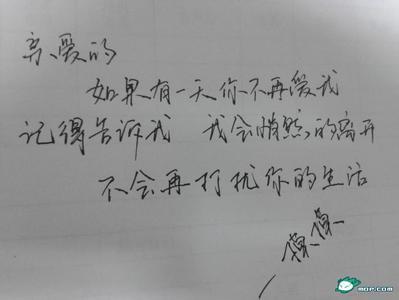 亲爱的
如果有一天你不再爱我
记得告诉我 我会悄然的离开
不会再打扰你的生活
MOP.COM